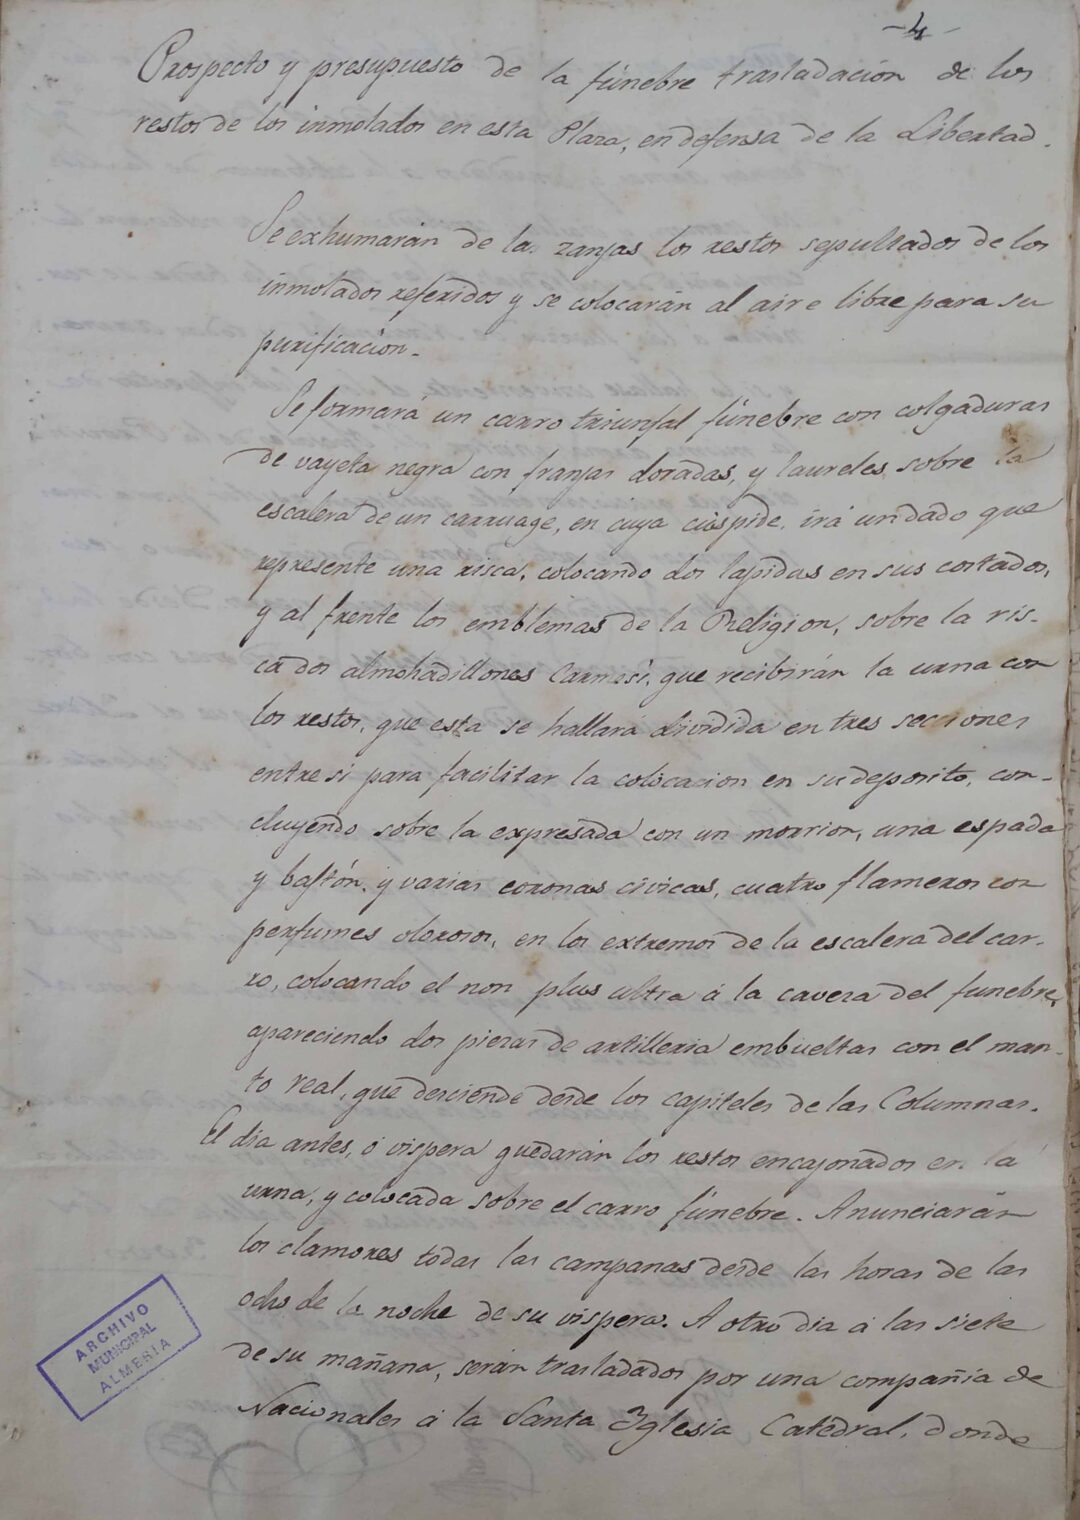 -4-
Prospecto y presupuesto de la fúnebre trasladación de los
restos de los inmolados en esta Plaza, en defensa de la Libertad.
Se exhumarán de las zanjas los restos sepultados de los
inmolados referidos y se colocarán al aire libre para su
purificación.
Se formará un carro triunfal fúnebre con colgaduras
de vayeta negra con franjas doradas, y laureles sobre la
escalera de un carruage, en cuya cúspide, irá un dado que
represente una risca, colocando dos lapidas en sus costados,
y al frente los emblemas de la Religion, sobre la ris-
ca dos almohadillones Carmesí, que recibirán la urna con
los restos, que esta se hallara dividida en tres secciones
entre si para facilitar la colocacion en su deposito, con-
cluyendo sobre la expresada con un morrion, una espada
y bastón, y varias coronas civicas, cuatro flameros con
perfumes olorosos, en los extremos de la escalera del car-
ro, colocando el non plus ultra á la caveza del funebre,
apareciendo dos piezas de artilleria embueltas con el man-
to real, que desciende desde los capiteles de las Columnas.
El dia antes, ó vispera quedarán los restos encajonados en la
urna, y colocada sobre el carro fúnebre. Anunciarán
los clamores todas las campanas desde las horas de las
ocho de la noche de su vispera. A otro dia á las siete
de su mañana, serán trasladados por una compañia de
Nacionales á la Santa Iglesia Catedral, donde
ARCHIVO
MUNICIPAL
ALMERIA